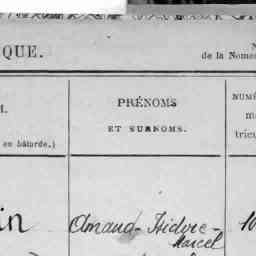 QUE.
N
de la Nome
M.
PRÉNOMS
NUMÉ
ET SURNOMS.
m
tricu
en bâtarde.)
in
Amand-Isidore-
10
Marcel